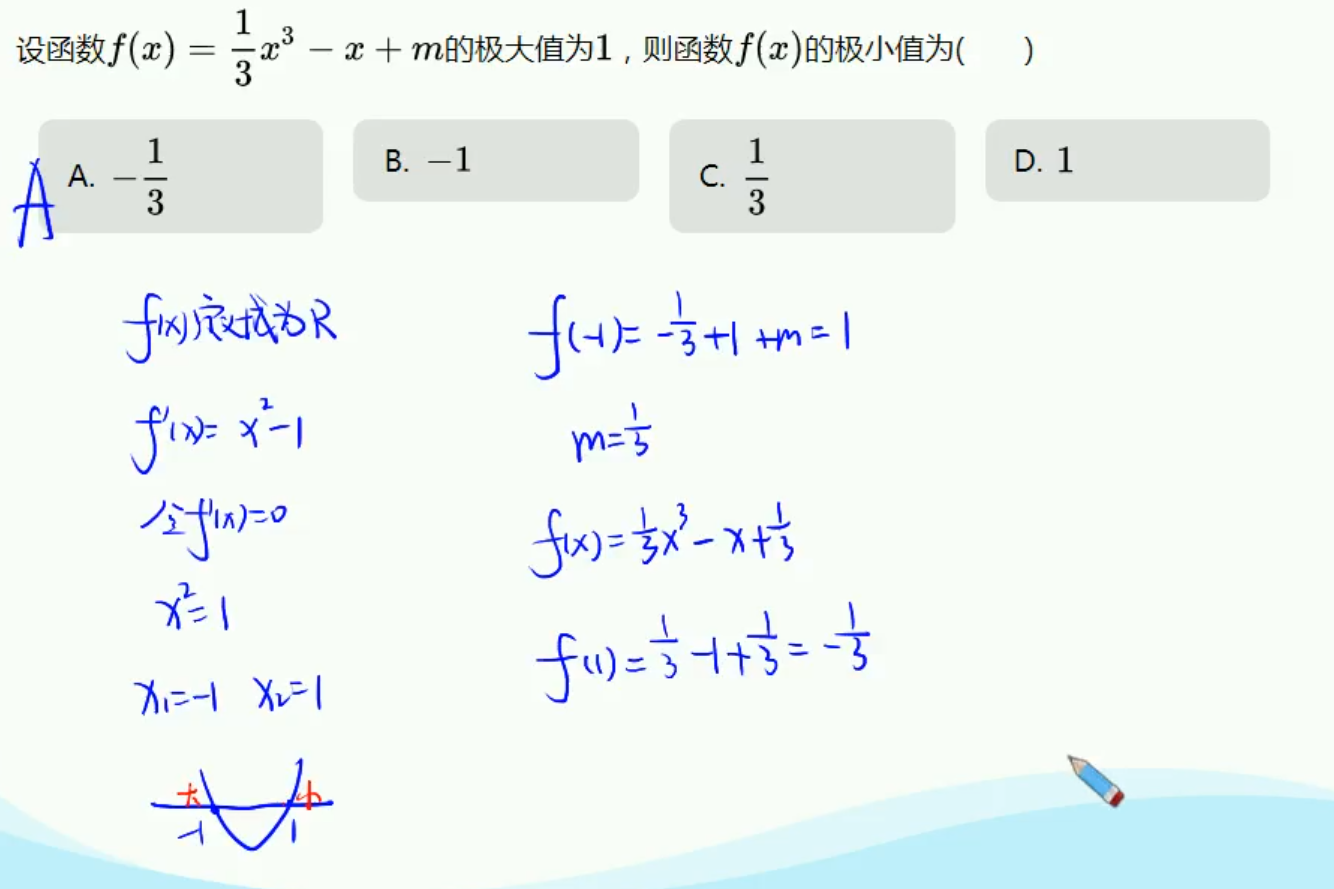 设函数f(x) = \frac{1}{3}x^3 - x + m的极大值为1，则函数f(x)的极小值为(　　)
A. -\frac{1}{3}
B. -1
C. \frac{1}{3}
D. 1
A
f(x)定义域为R
f'(x)= x^2-1
令f'(x)=0
x^2=1
x_1=-1 x_2=1
大 小
-1 1
f(-1)= -\frac{1}{3}+1+m=1
m=\frac{1}{3}
f(x)=\frac{1}{3}x^3-x+\frac{1}{3}
f(1)=\frac{1}{3}-1+\frac{1}{3}=-\frac{1}{3}